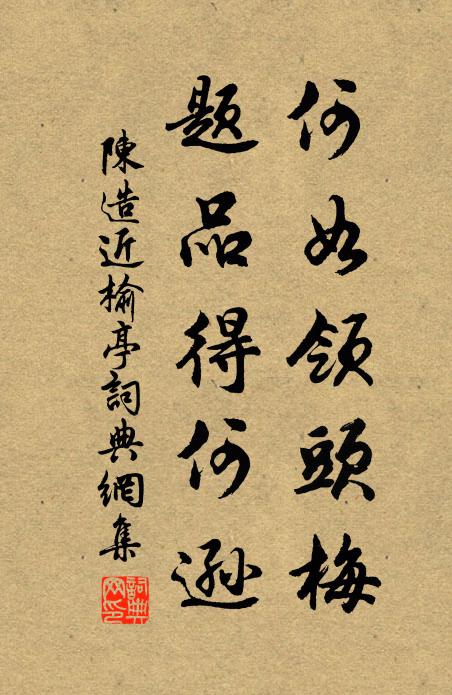 何如領頭梅
題品得何遜
陳造近榆亭詞典網集
詞典網印